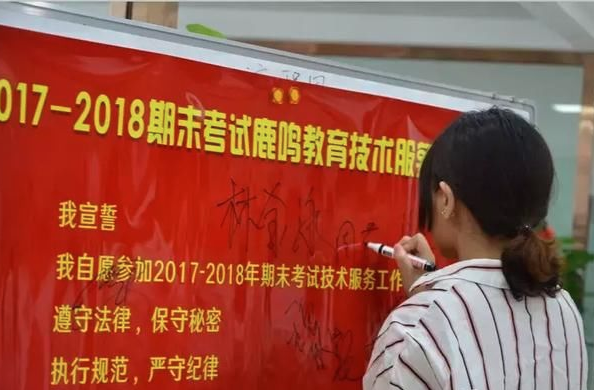 2017-2018期末考试鹿鸣教育技术服务
我宣誓
我自愿参加2017-2018年期末考试技术服务工作
遵守法律，保守秘密
执行规范，严守纪律